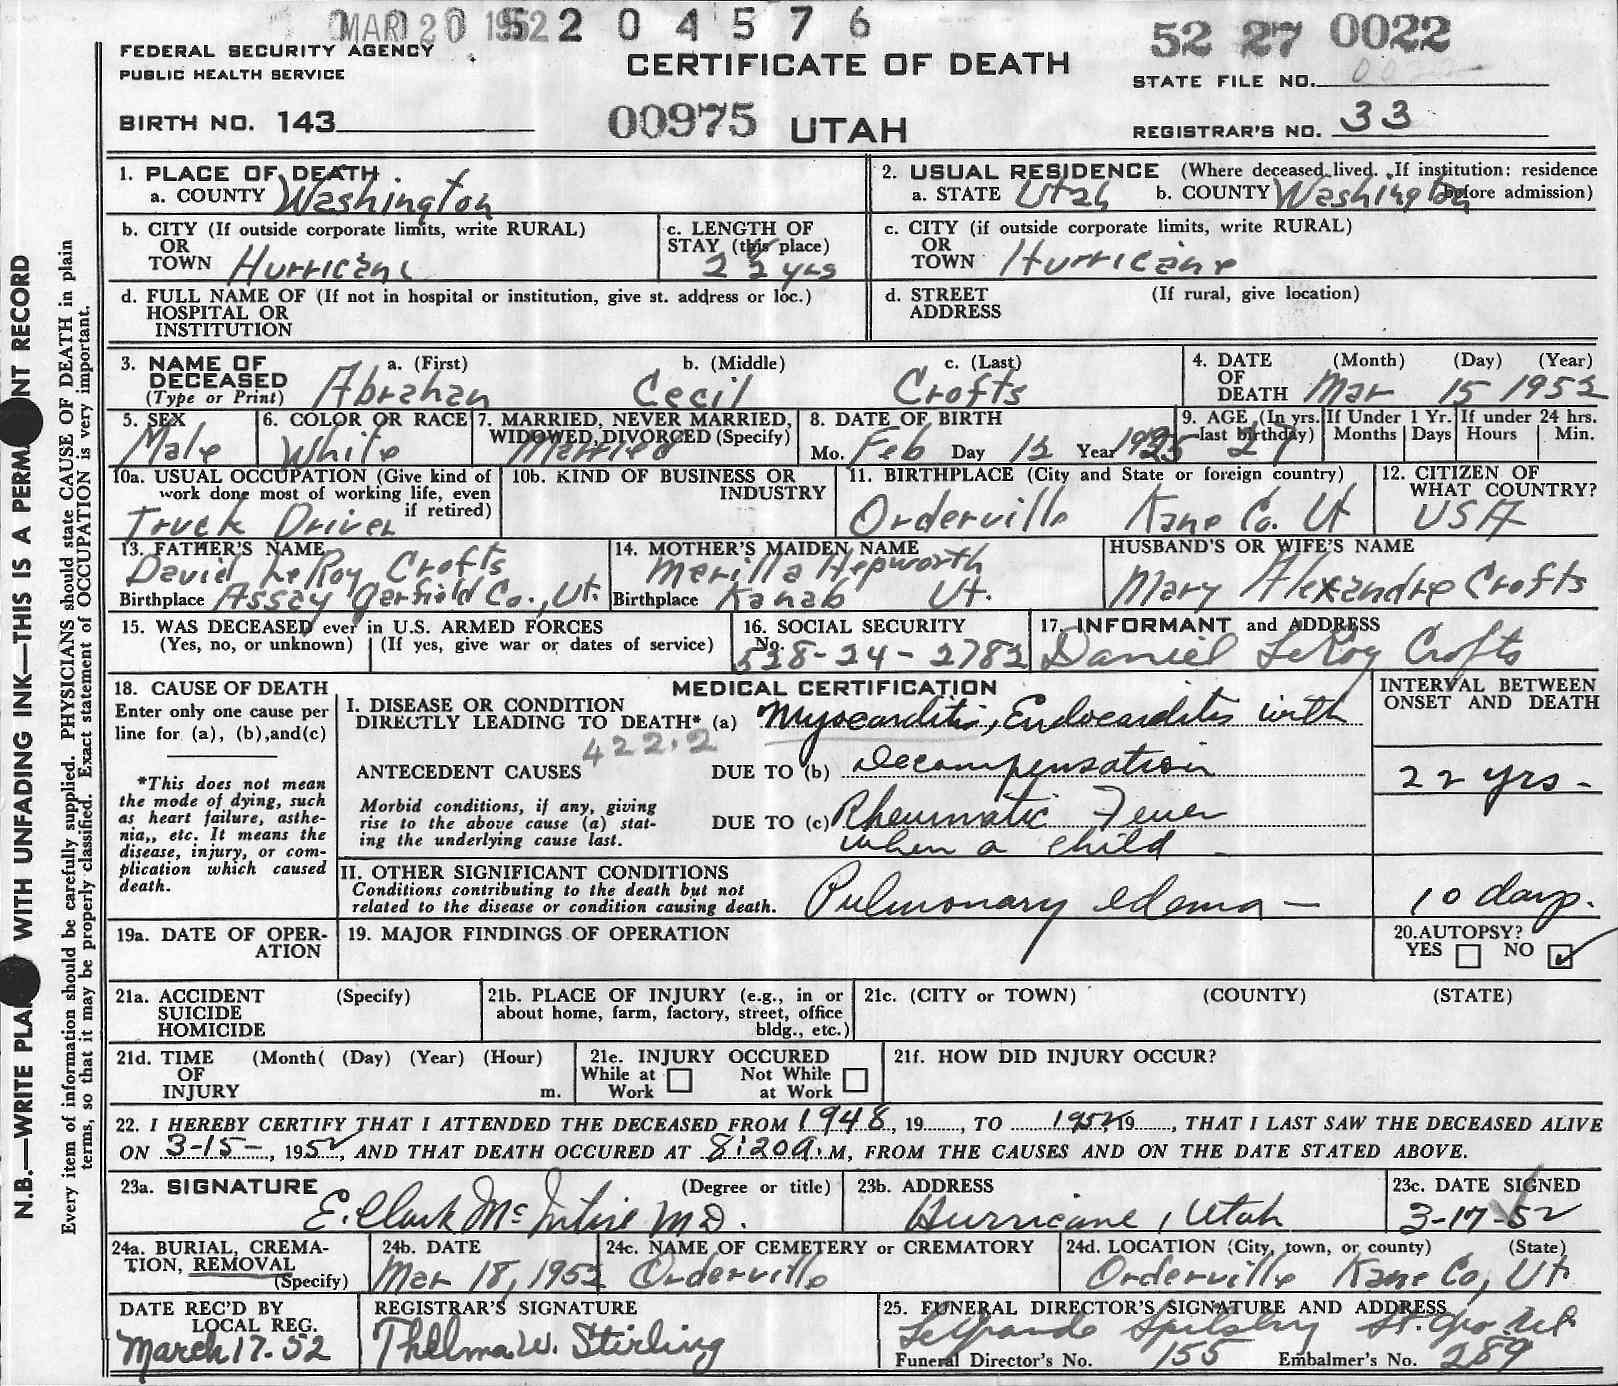 MAR 20 1952 5 2 0 4 5 7 6
52 27 0022
FEDERAL SECURITY AGENCY
PUBLIC HEALTH SERVICE
CERTIFICATE OF DEATH
STATE FILE NO.
BIRTH NO. 143
00975 UTAH
REGISTRAR'S NO. 33
N.B.—WRITE PLAI WITH UNFADING INK—THIS IS A PERMA NT RECORD
Every item of information should be carefully supplied. PHYSICIANS should state CAUSE OF DEATH in plain
terms, so that it may be properly classified. Exact statement of OCCUPATION is very important.
1. PLACE OF DEATH
a. COUNTY Washington
2. USUAL RESIDENCE (Where deceased lived. If institution: residence
a. STATE Utah b. COUNTY Washington before admission)
b. CITY (If outside corporate limits, write RURAL)
OR
TOWN Hurricane
c. LENGTH OF
STAY (this place)
22 yrs
c. CITY (if outside corporate limits, write RURAL)
OR
TOWN Hurricane
d. FULL NAME OF (If not in hospital or institution, give st. address or loc.)
HOSPITAL OR
INSTITUTION
d. STREET (If rural, give location)
ADDRESS
3. NAME OF DECEASED
(Type or Print)
a. (First) b. (Middle) c. (Last)
Abrahan Cecil Crofts
4. DATE (Month) (Day) (Year)
OF
DEATH Mar 15 1952
5. SEX
Male
6. COLOR OR RACE
White
7. MARRIED, NEVER MARRIED,
WIDOWED, DIVORCED (Specify)
Married
8. DATE OF BIRTH
Mo. Feb Day 12 Year 1925
9. AGE (In yrs.
last birthday) 27
If Under 1 Yr.
Months Days
If under 24 hrs.
Hours Min.
10a. USUAL OCCUPATION (Give kind of
work done most of working life, even
if retired)
Truck Driver
10b. KIND OF BUSINESS OR
INDUSTRY
11. BIRTHPLACE (City and State or foreign country)
Orderville Kane Co. Ut
12. CITIZEN OF
WHAT COUNTRY?
USA
13. FATHER'S NAME
David LeRoy Crofts
Birthplace Assay Garfield Co., Ut.
14. MOTHER'S MAIDEN NAME
Merilla Hepworth
Birthplace Kanab Ut.
HUSBAND'S OR WIFE'S NAME
Mary Alexandre Crofts
15. WAS DECEASED ever in U.S. ARMED FORCES
(Yes, no, or unknown) (If yes, give war or dates of service)
16. SOCIAL SECURITY
No.
528-24-2782
17. INFORMANT and ADDRESS
Daniel LeRoy Crofts
18. CAUSE OF DEATH
Enter only one cause per
line for (a), (b),and(c)
*This does not mean
the mode of dying, such
as heart failure, asthe-
nia,, etc. It means the
disease, injury, or com-
plication which caused
death.
MEDICAL CERTIFICATION
I. DISEASE OR CONDITION
DIRECTLY LEADING TO DEATH* (a) Myocarditis, Endocarditis with
422.2
ANTECEDENT CAUSES DUE TO (b) Decompensation
Morbid conditions, if any, giving
rise to the above cause (a) stat-
ing the underlying cause last.
DUE TO (c) Rheumatic Fever
when a child
INTERVAL BETWEEN
ONSET AND DEATH
22 yrs-
II. OTHER SIGNIFICANT CONDITIONS
Conditions contributing to the death but not
related to the disease or condition causing death.
Pulmonary edema —
10 days.
19a. DATE OF OPER-
ATION
19. MAJOR FINDINGS OF OPERATION
20.AUTOPSY?
YES NO
21a. ACCIDENT (Specify)
SUICIDE
HOMICIDE
21b. PLACE OF INJURY (e.g., in or
about home, farm, factory, street, office
bldg., etc.)
21c. (CITY or TOWN) (COUNTY) (STATE)
21d. TIME (Month( (Day) (Year) (Hour)
OF
INJURY m.
21e. INJURY OCCURED
While at Not While
Work at Work
21f. HOW DID INJURY OCCUR?
22. I HEREBY CERTIFY THAT I ATTENDED THE DECEASED FROM 1948, 19......, TO 1952 19......, THAT I LAST SAW THE DECEASED ALIVE
ON 3-15-, 1952, AND THAT DEATH OCCURED AT 8:20a.M, FROM THE CAUSES AND ON THE DATE STATED ABOVE.
23a. SIGNATURE (Degree or title)
E. Clark McIntire MD.
23b. ADDRESS
Hurricane, Utah
23c. DATE SIGNED
3-17-52
24a. BURIAL, CREMA-
TION, REMOVAL
(Specify)
24b. DATE
Mar 18, 1952
24c. NAME OF CEMETERY or CREMATORY
Orderville
24d. LOCATION (City, town, or county) (State)
Orderville Kane Co, Ut
DATE REC'D BY
LOCAL REG.
March 17-52
REGISTRAR'S SIGNATURE
Thelma W. Stirling
25. FUNERAL DIRECTOR'S SIGNATURE AND ADDRESS
LeGrande Spilsbry St. Geo. Ut
Funeral Director's No. 155 Embalmer's No. 289